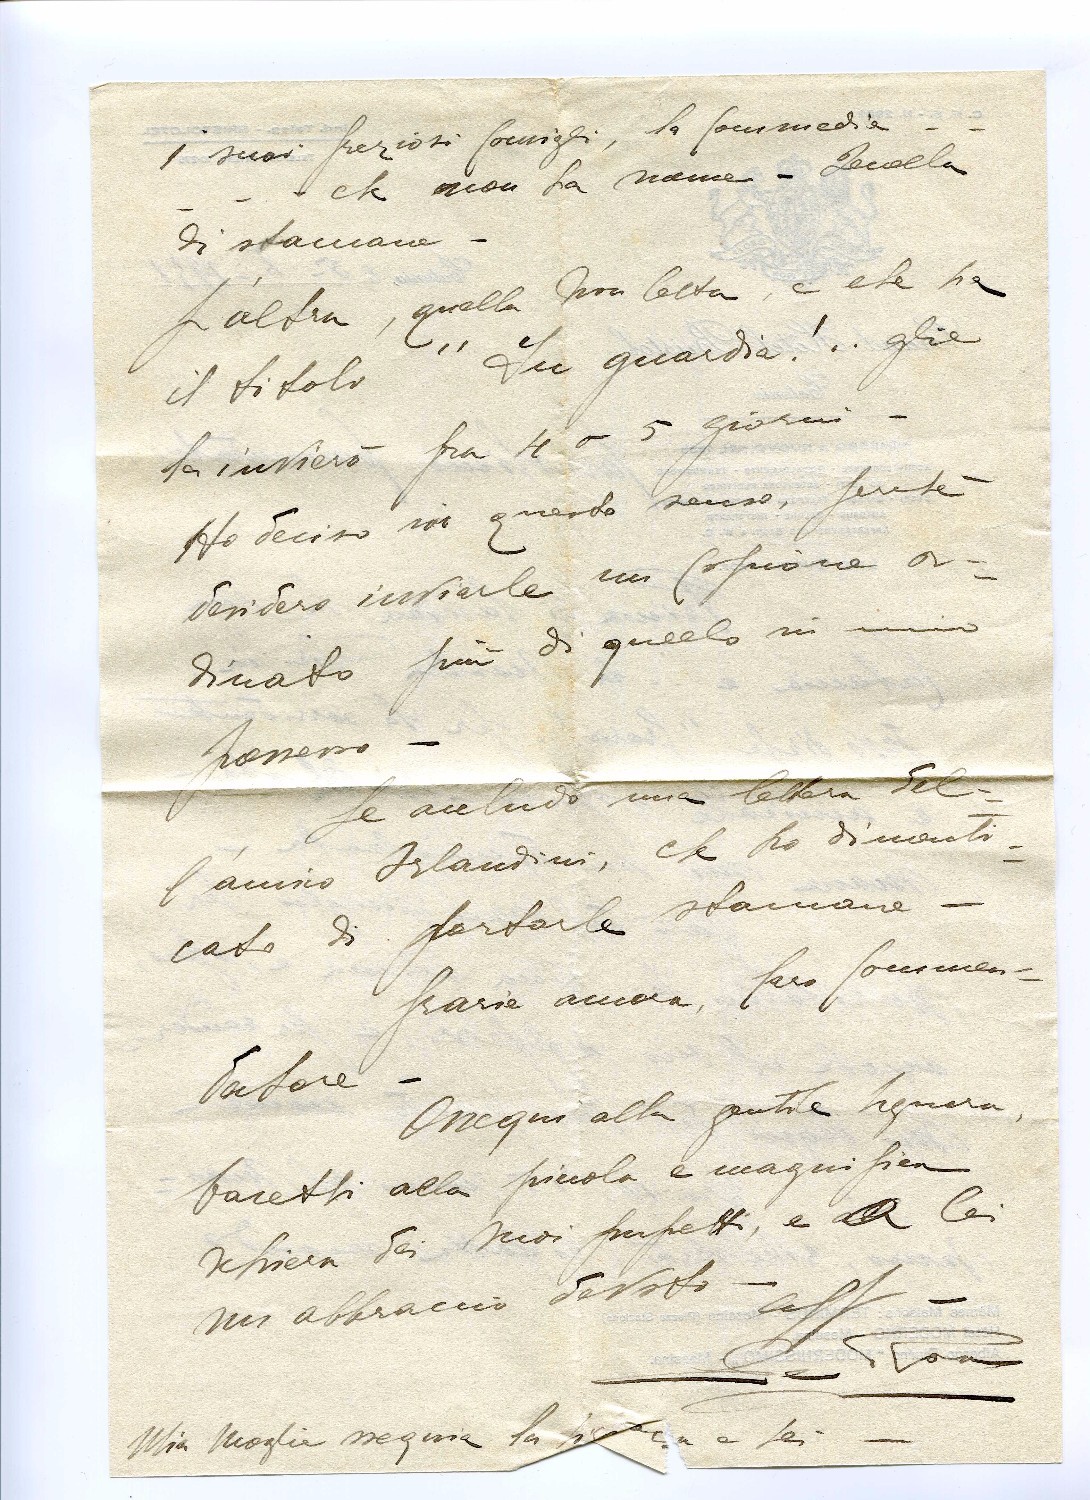 i suoi preziosi consigli, la commedia - -
- - - che non ha nome - Quella
di stamane -
L'altra, quella non letta, e che ha
il titolo " In guardia!.. glie
la invierò fra 4 o 5 giorni -
Ho deciso in questo senso, perchè
desidero inviarle un copione or-
dinato più di quello in mio
possesso -
Le accludo una lettera del-
l'amico Orlandini, che ho dimenti-
cato di portarle stamane -
Grazie ancora, caro Commen-
datore -
Ossequi alla gentile Signora,
bacetti alla piccola e magnifica
schiera dei suoi pupetti, e a Lei
un abbraccio devoto -
aff -
Mia moglie ossequia la Signora e Lei -